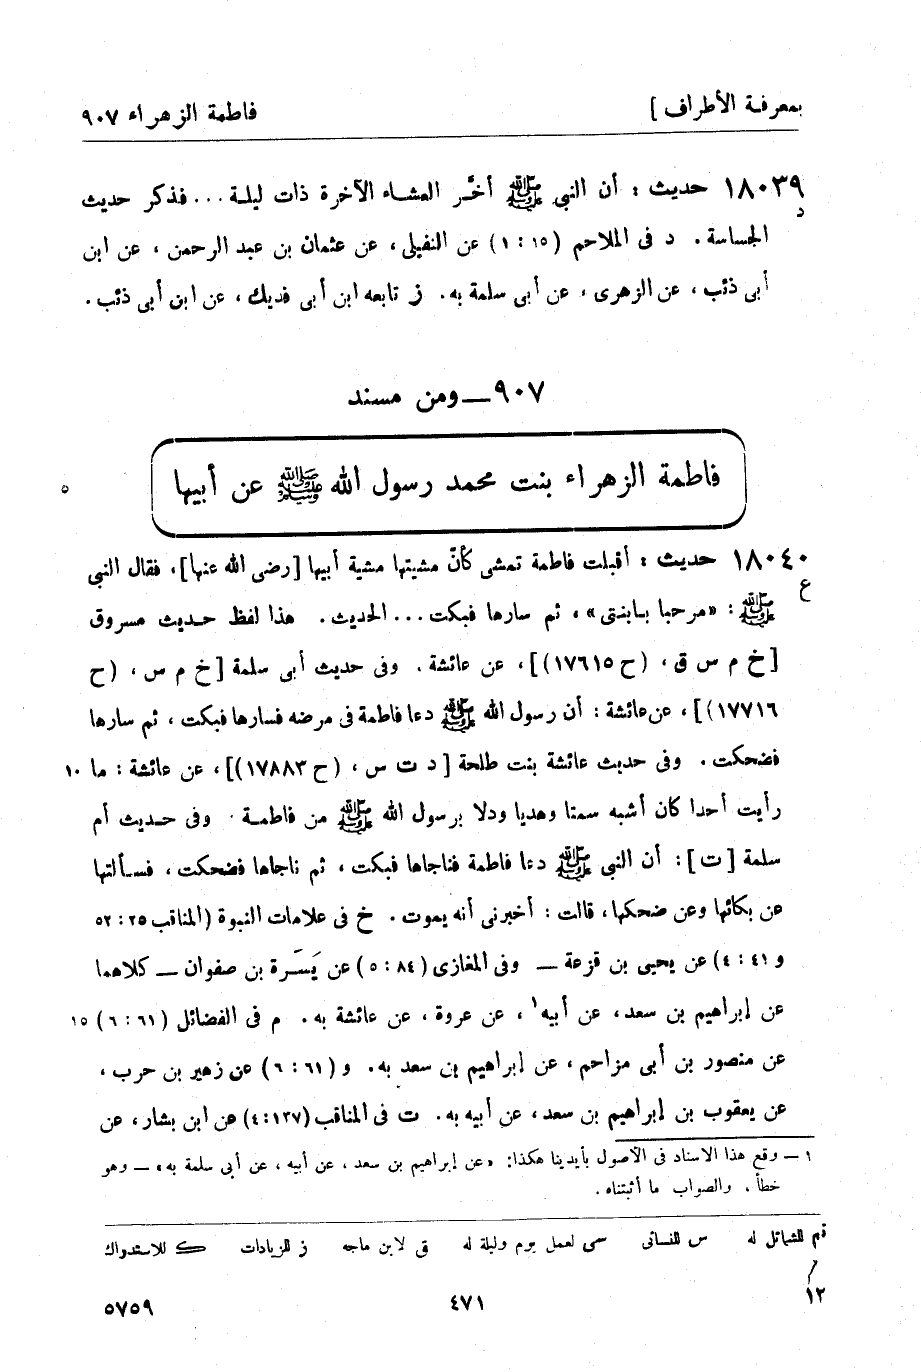 بمعرفة الأطراف ] فاطمة الزهراء ٩٠٧
١٨٠٣٩ حديث : أن النبي ﷺ أخَّر العشاء الآخرة ذات ليلة ... فذكر حديث
د
الجساسة . د فى الملاحم (١٥ : ١) عن النفيلى ، عن عثمان بن عبد الرحمن ، عن ابن
أبى ذئب ، عن الزهرى ، عن أبى سلمة به . ز تابعه ابن أبى فديك ، عن ابن أبى ذئب .
٩٠٧ـــ ومن مسند
فاطمة الزهراء بنت محمد رسول الله ﷺ عن أبيها
٥
١٨٠٤٠ حديث : أقبلت فاطمة تمشى كأنّ مشيتها مشية أبيها [رضى الله عنها] ، فقال النبى
ع
ﷺ : «مرحبا بابنتى» ، ثم سارها فبكت ... الحديث . هذا لفظ حديث مسروق
[خ م س ق ، (ح ١٧٦١٥)] ، عن عائشة . وفى حديث أبى سلمة [خ م س ، (ح
١٧٧١٦)] ، عن عائشة : أن رسول الله ﷺ دعا فاطمة فى مرضه فسارها فبكت ، ثم سارها
فضحكت . وفى حديث عائشة بنت طلحة [د ت س ، (ح ١٧٨٨٣)] ، عن عائشة : ما ١٠
رأيت أحدا كان أشبه سمتا وهديا ودلا برسول الله ﷺ من فاطمة . وفى حديث أم
سلمة [ت] : أن النبي ﷺ دعا فاطمة فناجاها فبكت ، ثم ناجاها فضحكت ، فسألتها
عن بكائها وعن ضحكها ، قالت : أخبرنى أنه يموت . خ فى علامات النبوة (المناقب ٢٥ : ٥٢
و ٤١ : ٤) عن يحيى بن قزعة ـــ وفى المغازى (٨٤ : ٥) عن يَسَرة بن صفوان ـــ كلاهما
عن إبراهيم بن سعد ، عن أبيه١ ، عن عروة ، عن عائشة به . م فى الفضائل (٦١ : ٦) ١٥
عن منصور بن أبى مزاحم ، عن إبراهيم بن سعد به . و (٦١ : ٦) عن زهير بن حرب ،
عن يعقوب بن إبراهيم بن سعد ، عن أبيه به . ت فى المناقب (١٣٧ : ٤) عن ابن بشار ، عن
١ ـــ وقع هذا الاسناد فى الأصول بأيدينا هكذا : «عن إبراهيم بن سعد ، عن أبيه ، عن أبى سلمة به» ـــ وهو
خطأ . والصواب ما أثبتناه .
تم للشمائل له س للنسائى سى لعمل يوم وليلة له ق لابن ماجه ز للزيادات ك للاستدراك
١٢ ٤٧١ ٥٧٥٩